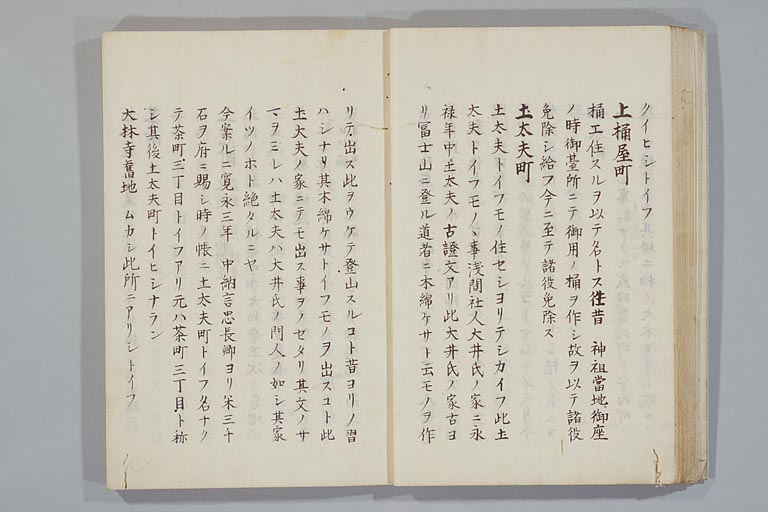 クイヒシトイフ
上桶屋町
桶工住スルヲ以テ名トス往昔　神祖當地御座
ノ時御臺所ニテ御用ノ桶ヲ作シ故ヲ以テ諸役
免除シ給フ今ニ至テ諸役免除ス
土太夫町
土太夫トイフモノ住セシヨリテシカイフ此土
太夫トイフモノヽ事浅間社人大井氏ノ家ニ永
禄年中土太夫ノ古證文アリ此大井氏ノ家古ヨ
リ冨士山ニ登ル道者ニ木綿ケサト云モノヲ作
リテ出ス此ヲウケテ登山スルコト昔ヨリノ習
ハシナリ其木綿ケサトイフモノヲ出スコト此
土太夫ノ家ニテモ出ス事ヲノセタリ其文ノサ
マヲミレハ土太夫ハ大井氏ノ門人ノ如シ其家
イツノホト絶タルニヤ
今案ルニ寛永三年　中納言忠長卿ヨリ米三千
石ヲ府ニ賜シ時ノ帳ニ土太夫町トイフ名ナク
テ茶町三丁目トイフアリ元ハ茶町三丁目ト称
シ其後土太夫町トイヒシナラン
大林寺舊地　ムカシ此所ニアリシトイフ